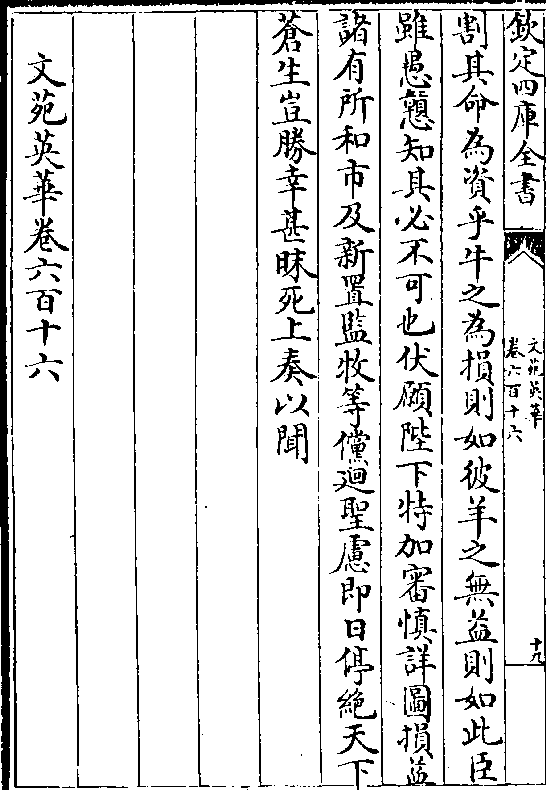 欽定四庫全書
文苑英華
卷六百十六
十九
割其命為資乎牛之為損則如彼羊之無益則如此臣
雖愚戇知其必不可也伏願陛下特加審慎詳圖損益
諸有所和市及新置監牧等儻迴聖慮即日停絶天下
蒼生豈勝幸甚昧死上奏以聞
文苑英華卷六百十六